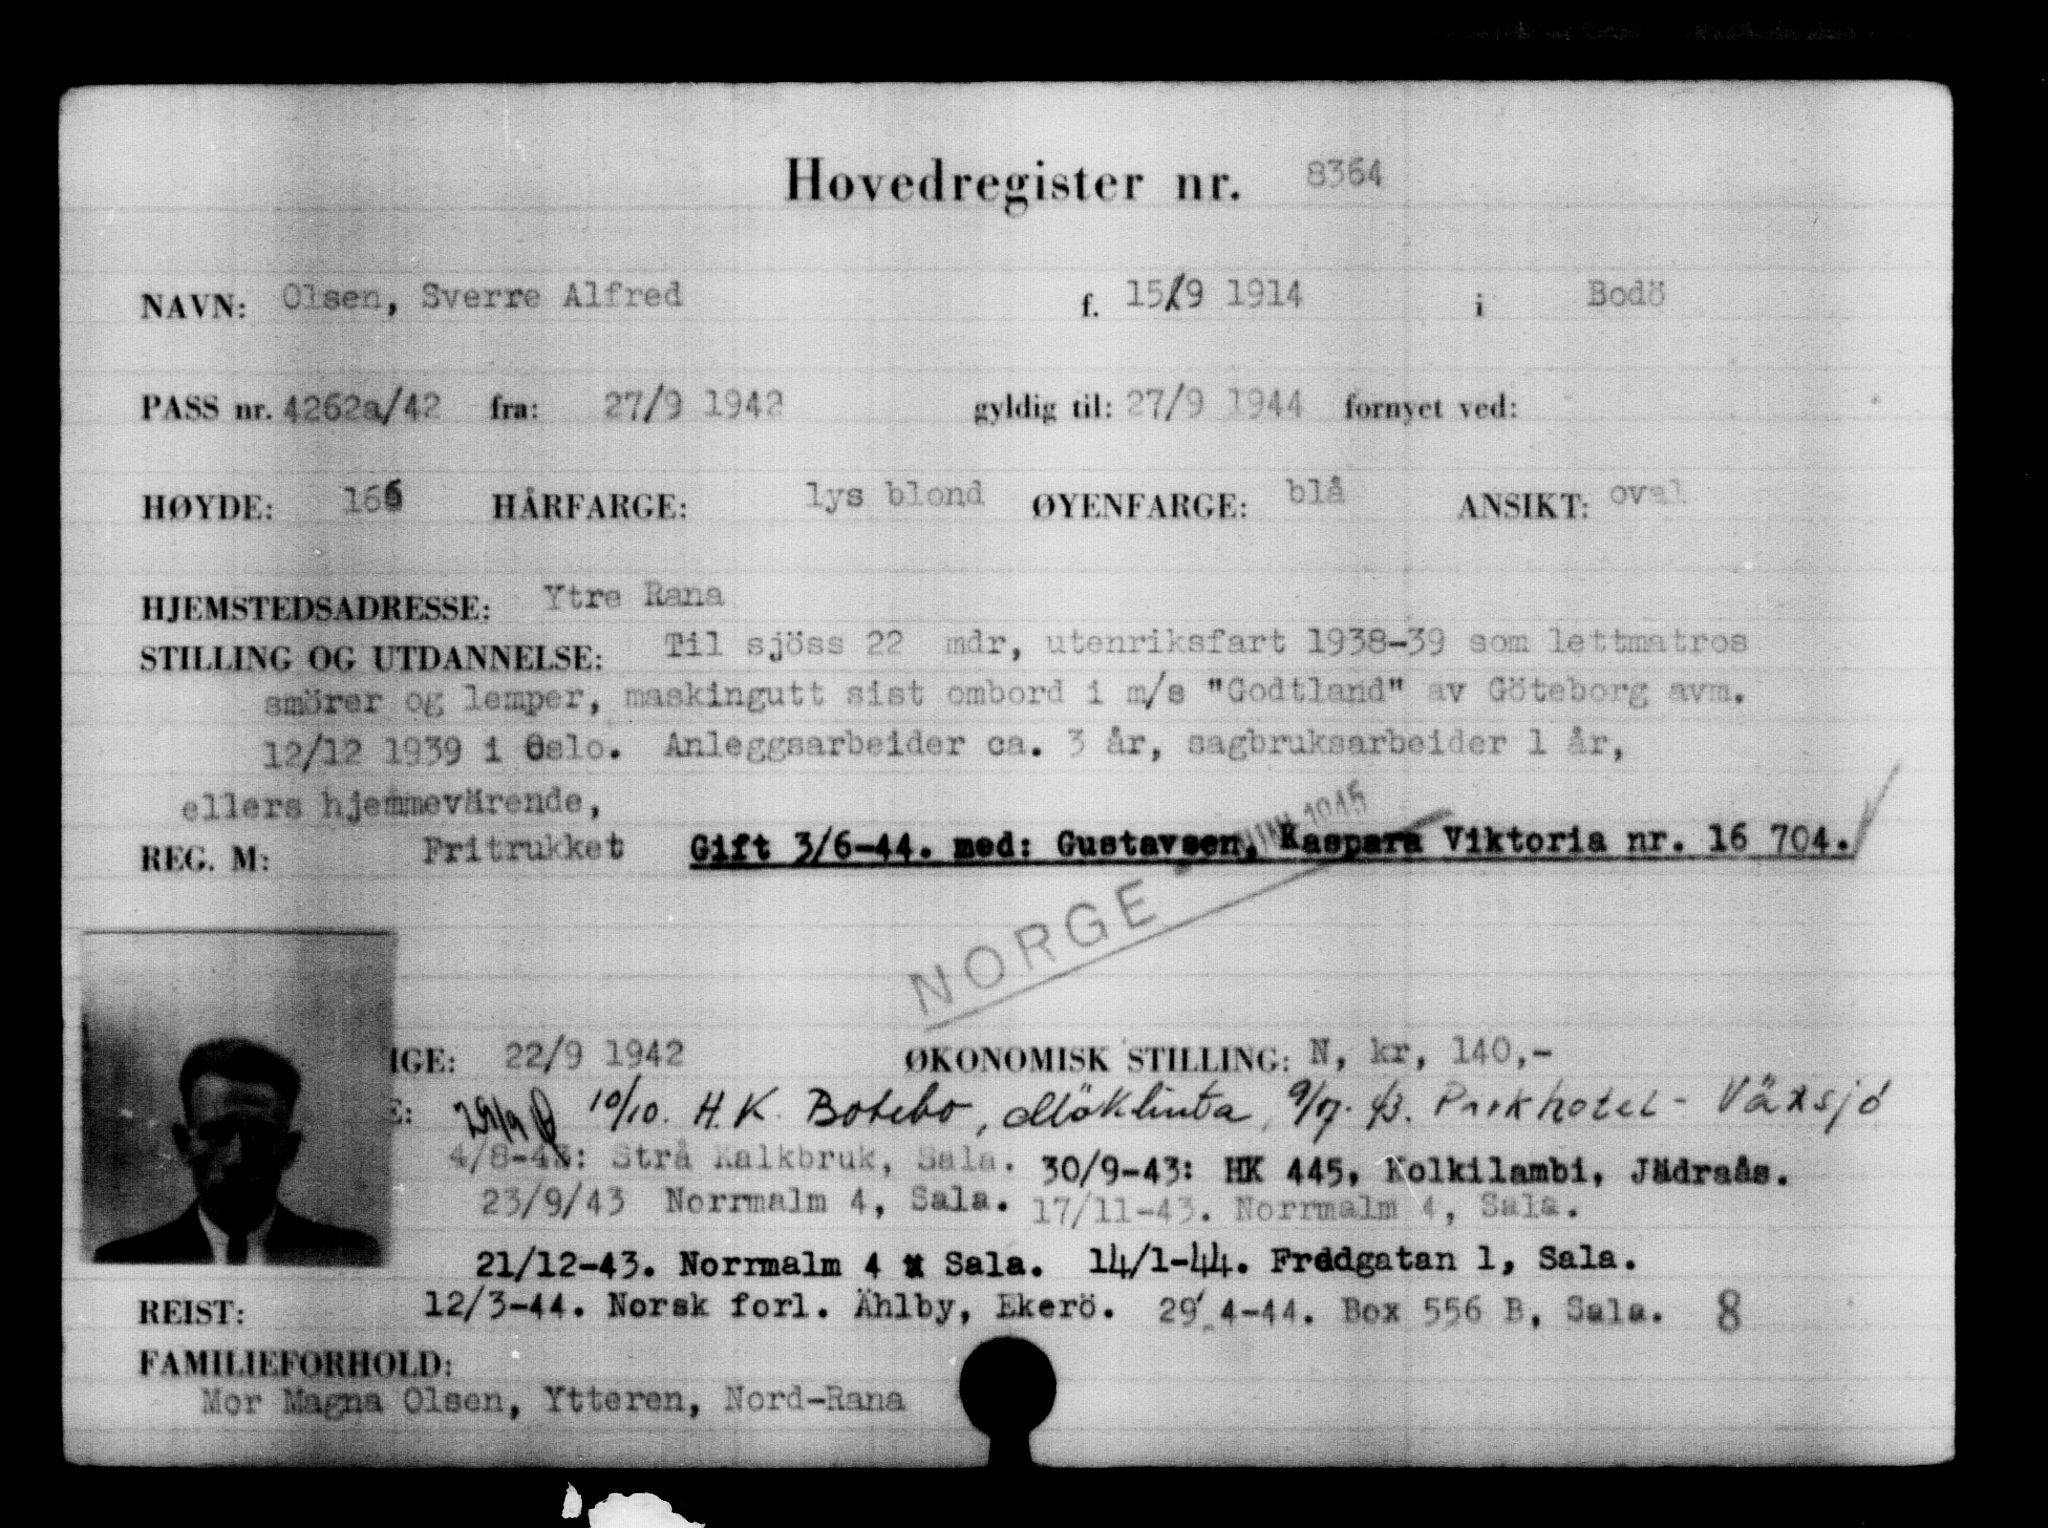 Hovedregister nr. 8364
NAVN: Olsen, Sverre Alfred f. 15/9 1914 i Bodö
PASS nr. 4262a/42 fra: 27/9 1942 gyldig til: 27/9 1944 fornyet ved:
HØYDE: 166 HÅRFARGE: lys blond ØYENFARGE: blå ANSIKT: oval
HJEMSTEDSADRESSE: Ytre Rana
STILLING OG UTDANNELSE: Til sjöss 22 mdr, utenriksfart 1938-39 som lettmatros
smörer og lemper, maskingutt sist ombord i m/s "Godtland" av Göteborg avm.
12/12 1939 i Oslo. Anleggsarbeider ca. 3 år, sagbruksarbeider 1 år,
ellers hjemmevärende,
REG. M: Fritrukket Gift 3/6-44. med: Gustavsen, Kaspara Viktoria nr. 16 704.
NORGE 1945
IGE: 22/9 1942 ØKONOMISK STILLING: N, kr, 140,-
E: 29/9 Ö 10/10. H.K. Botebo, Möklinta, 9/7. 43. Parkhotel - Växsjö
4/8-43: Strå Kalkbruk, Sala. 30/9-43: HK 445, Kolkilambi, Jädraås.
23/9/43 Norrmalm 4, Sala. 17/11-43. Norrmalm 4, Sala.
21/12-43. Norrmalm 4 Sala. 14/1-44. Fredgatan 1, Sala.
REIST: 12/3-44. Norsk forl. Ählby, Ekerö. 29/4-44. Box 556 B, Sala. 8
FAMILIEFORHOLD:
Mor Magna Olsen, Ytteren, Nord-Rana